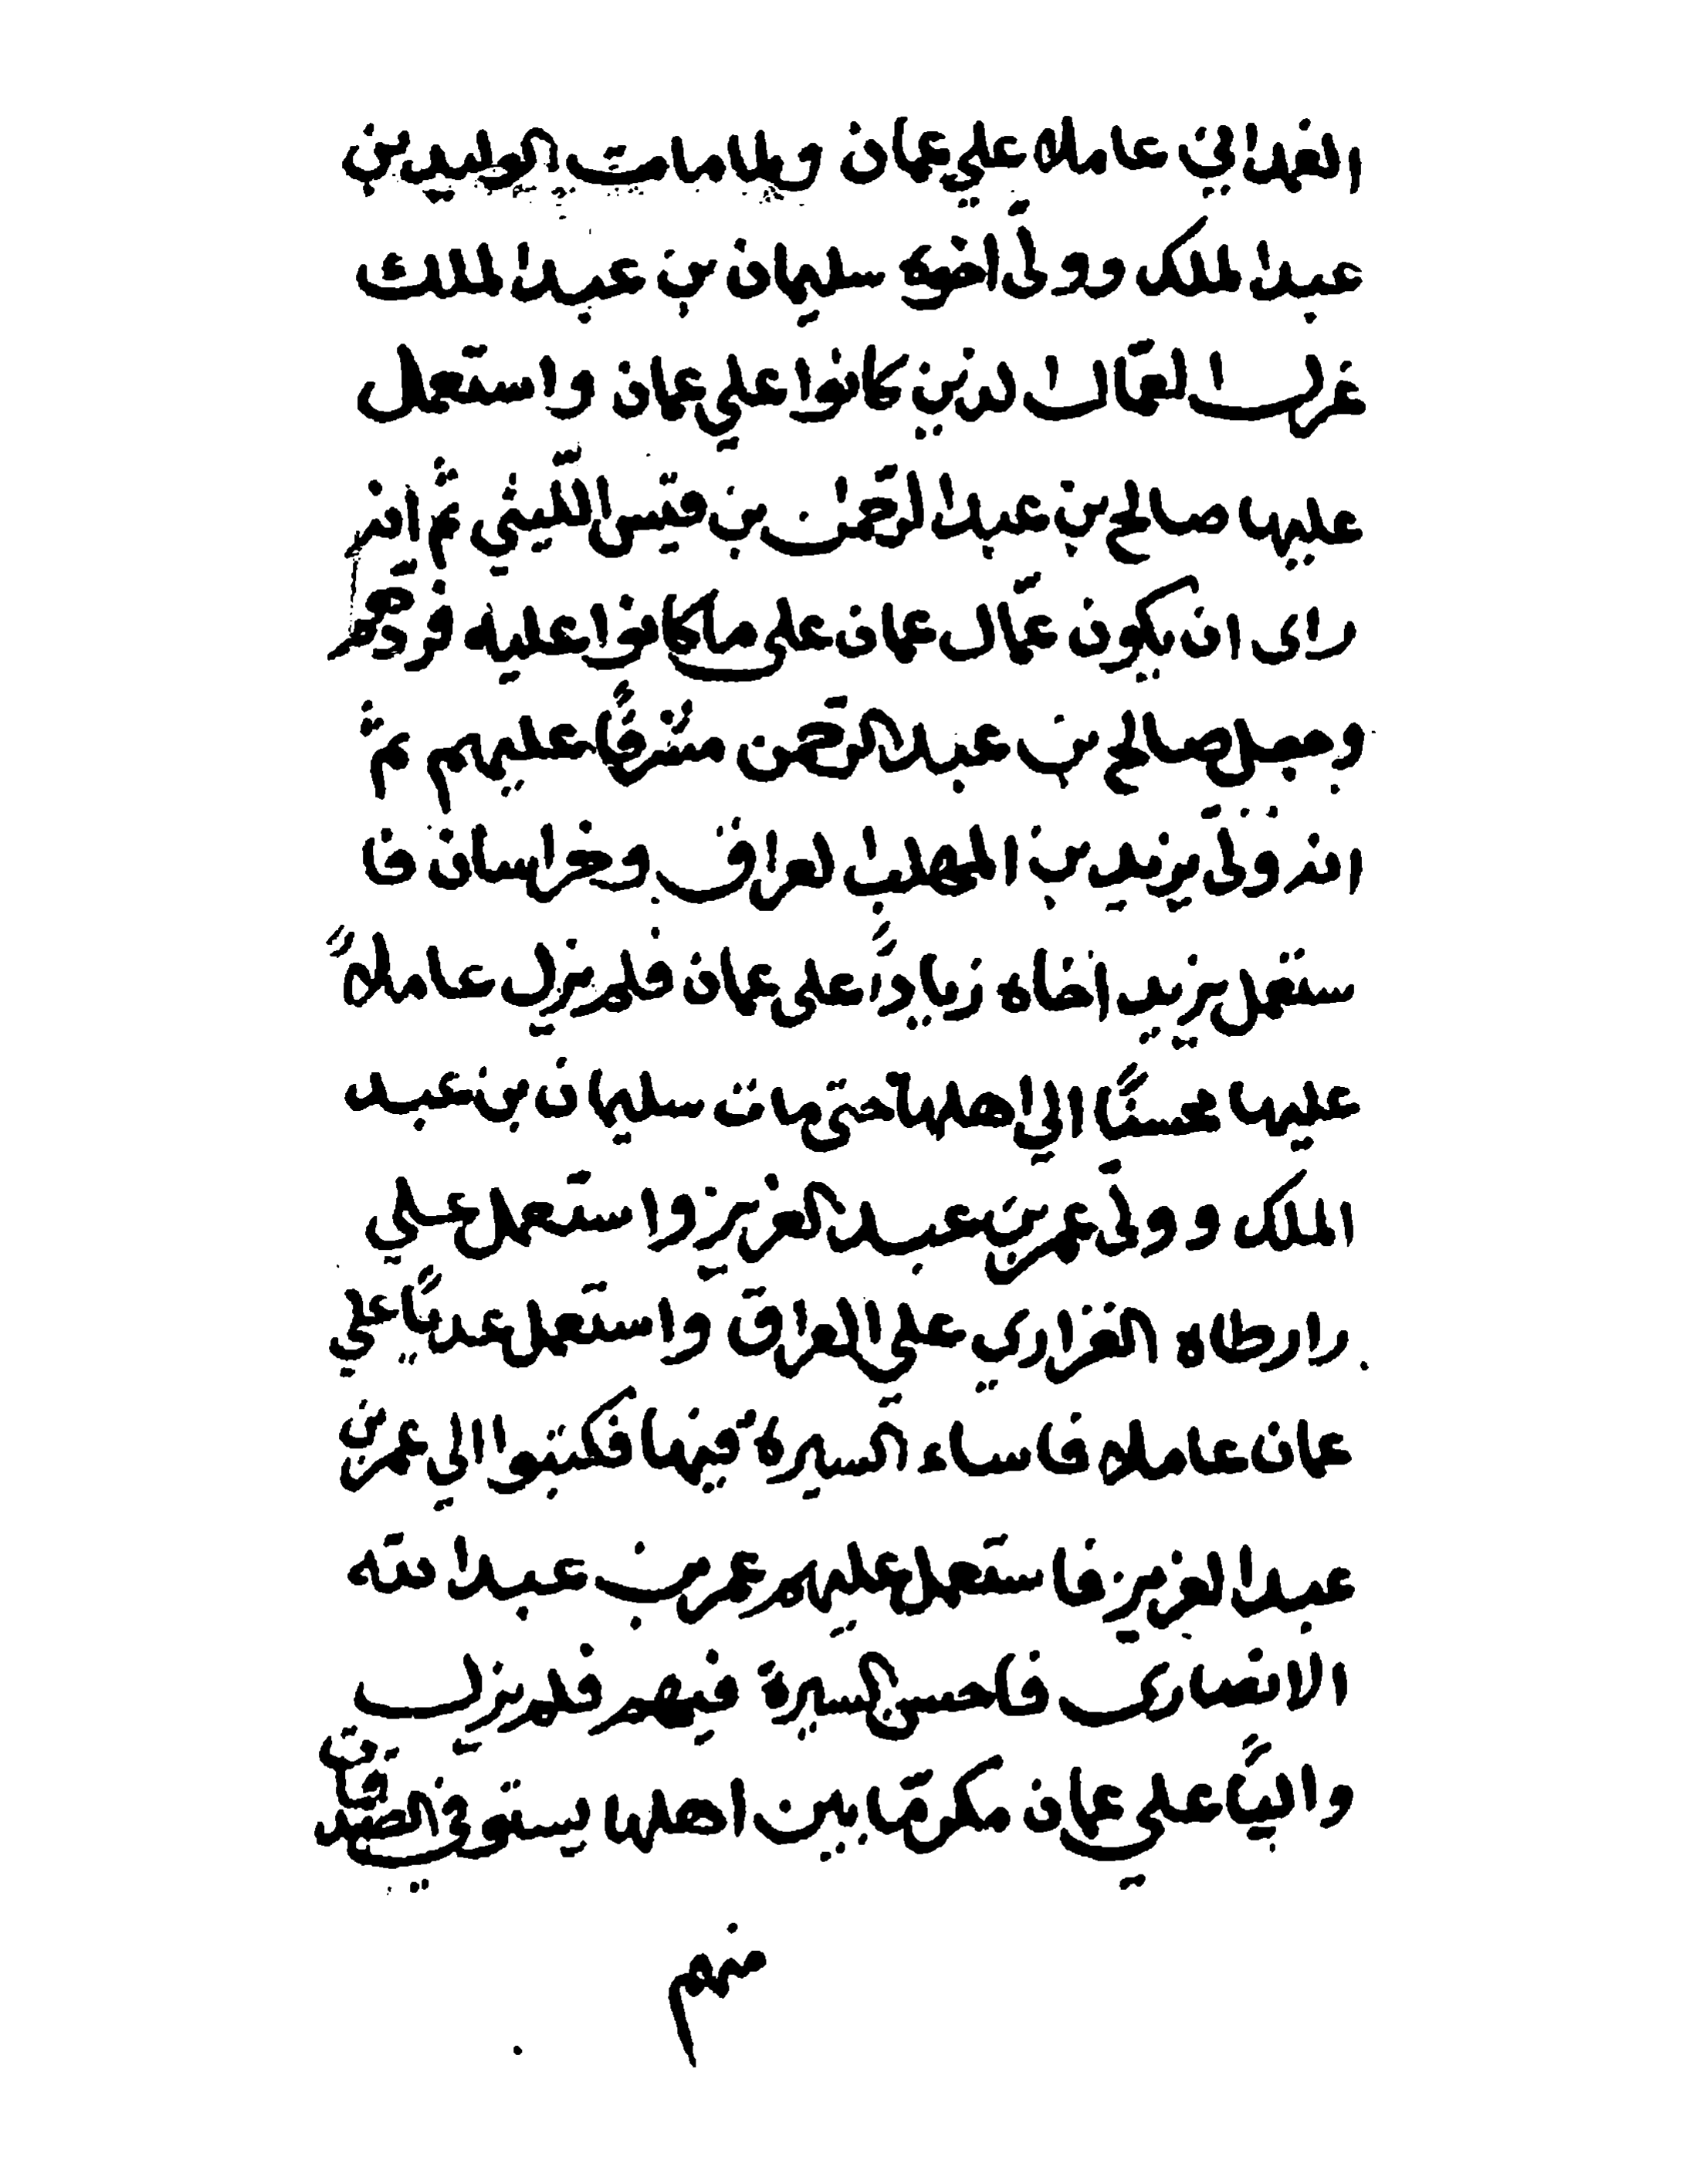 الهمداني عاملا على عمان ولما مات الوليد بن
عبد الملك وولى اخوه سليمان بن عبد الملك
عزل العمّال الذين كانوا علي عمان واستعمل
عليها صالح بن عبد الرّحمن بن قيس اللّيثي ثم انه
راى ان يكون عمّال عمان على ما كانوا عليه فردّهم
وجعل صالح بن عبد الرّحمن مشرفًا عليهم ثم
انه ولّى يزيد بن المهلب العراق وخراسان فا
ستعمل يزيد اخاه زيادًا على عمان فلم يزل عاملاً
عليها محسنًا الي اهلها حتى مات سليمان بن عبد
الملك وولّى عمر بن عبد العزيز واستعمل علي
ارطاه الفزاري علي العراق واستعمل عديًا علي
عمان عاملا فاساء السيرة فيها فكتبوا الي عمر بن
عبد العزيز فاستعمل عليهم عمر بن عبد الله
الانصاريّ فاحسن السيرة فيهم فلم يزل
واليًا علي عمان مكرمّا بين اهلها يستوفي الصّدقات
منهم